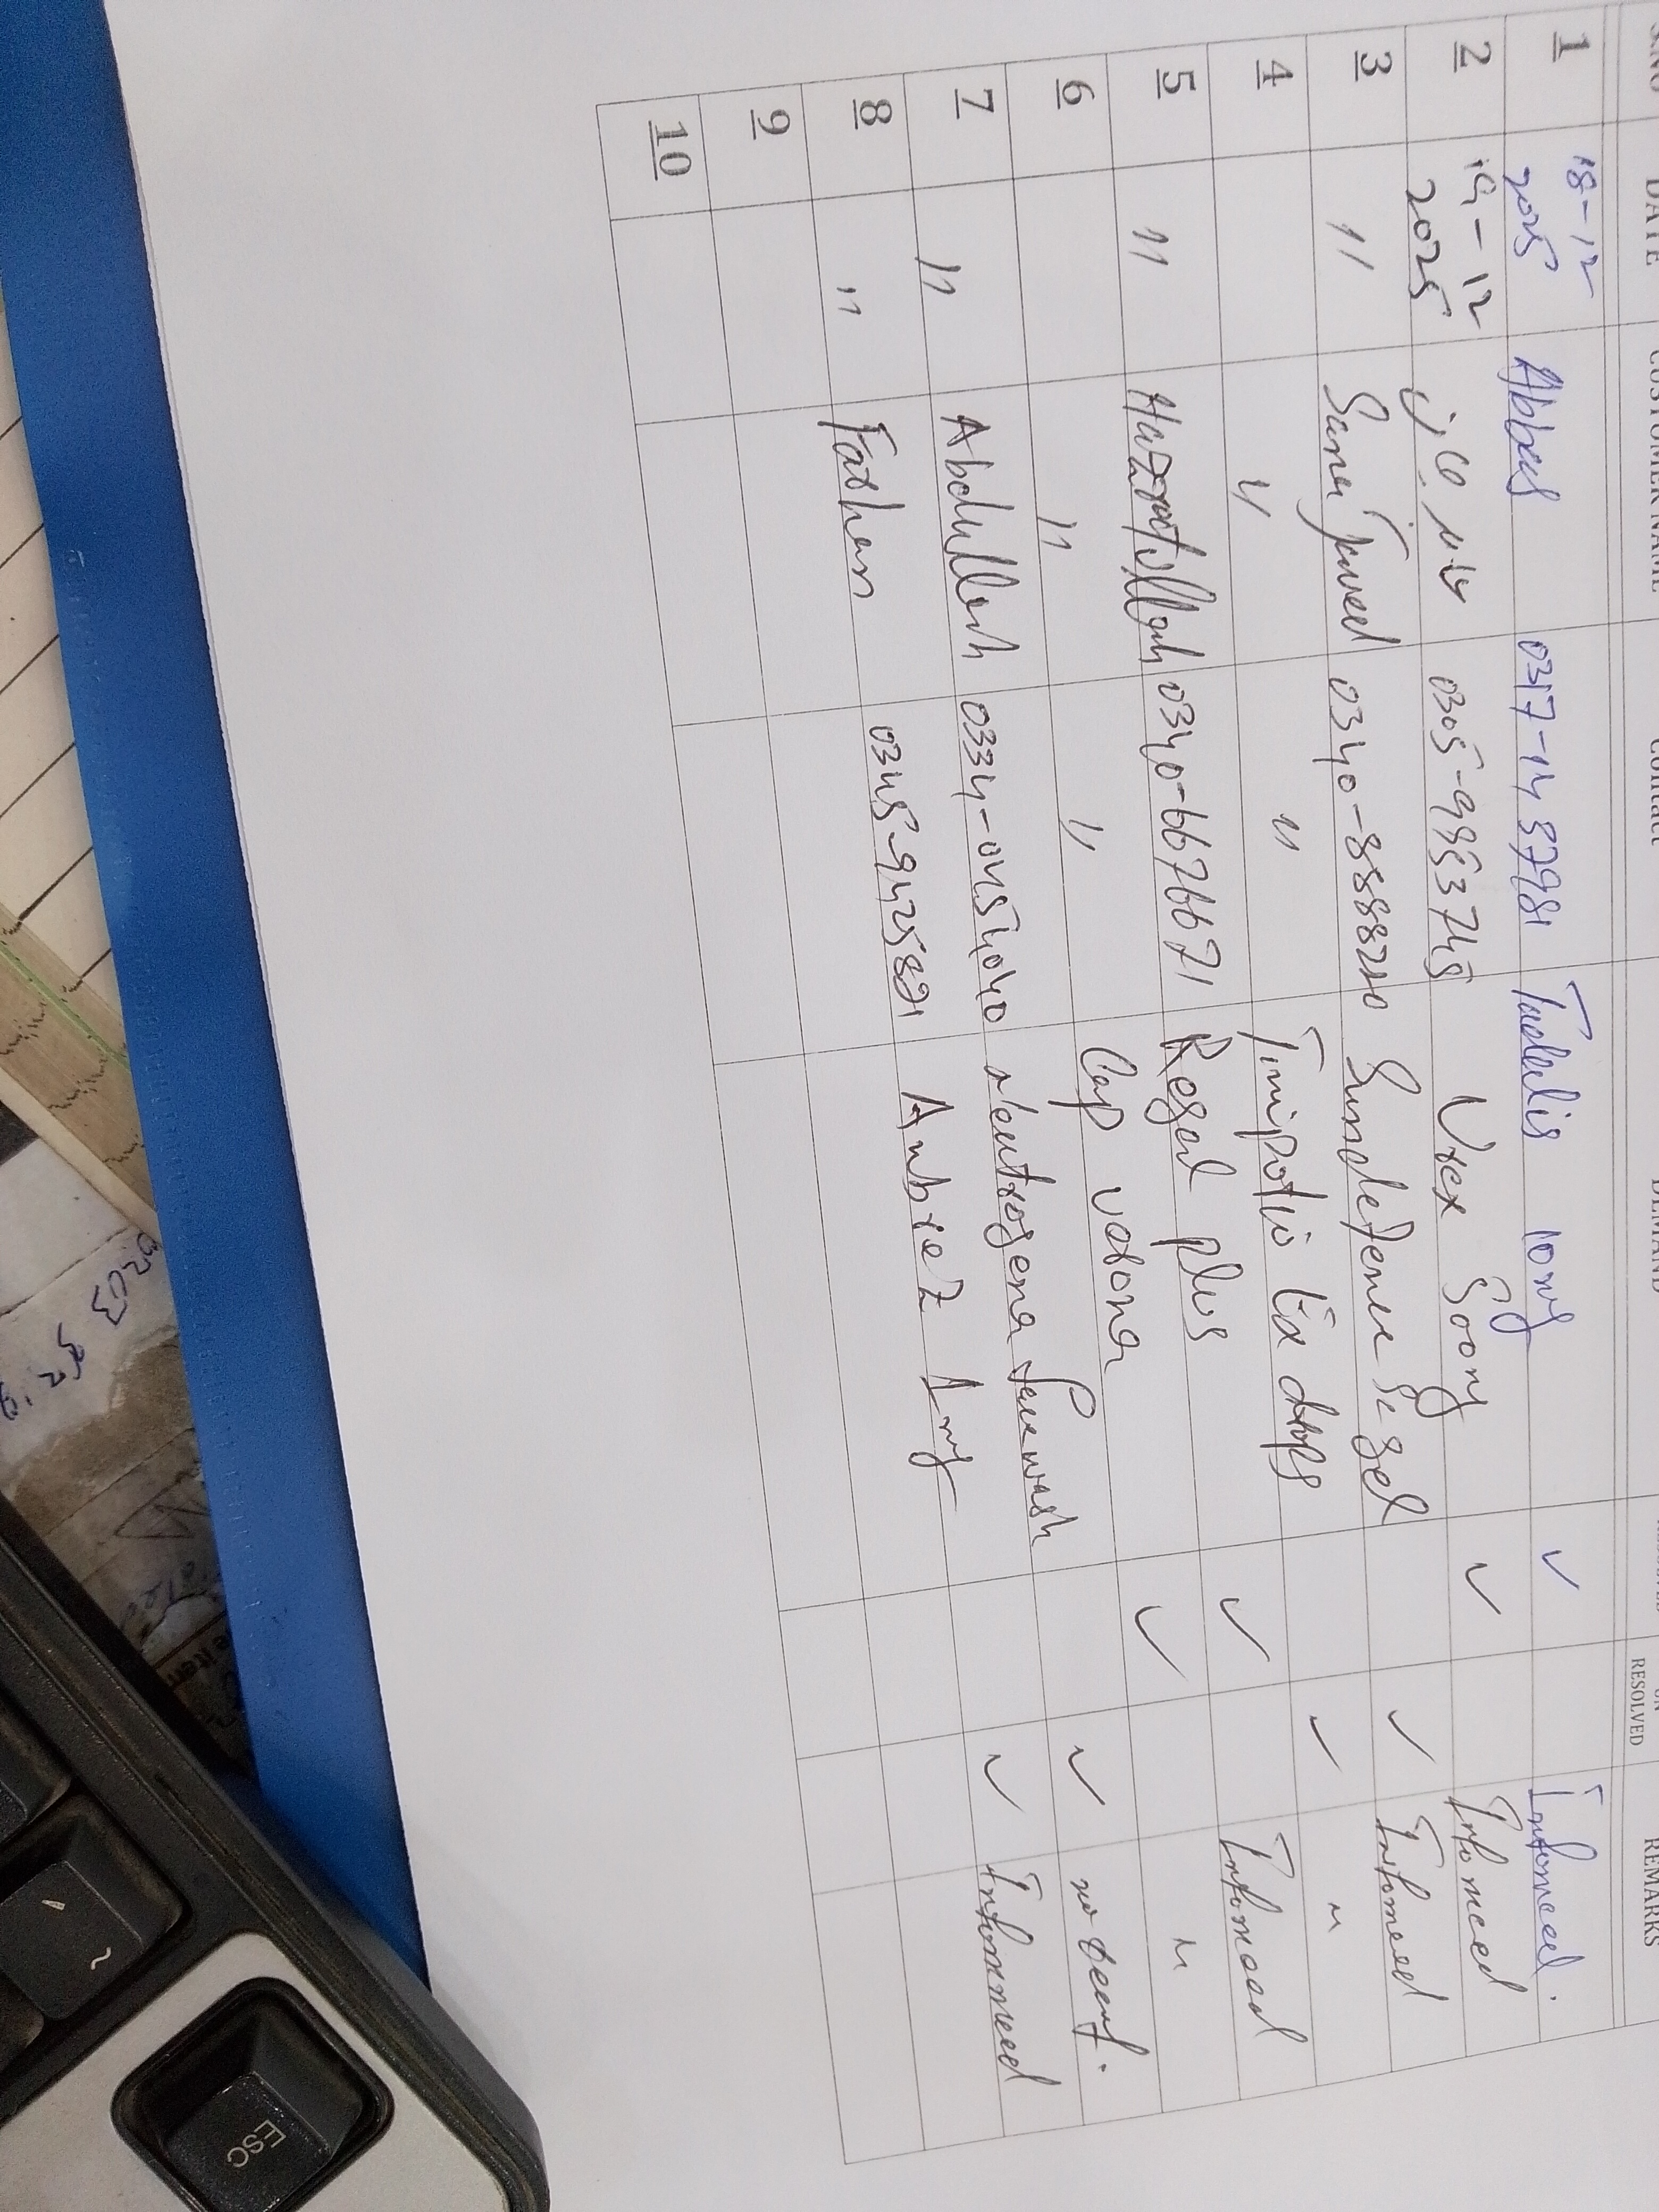 S.NO DATE CUSTOMER NAME Contact DEMAND RESOLVED UN RESOLVED REMARKS
1 18-12 2025 Abbas 0317-1437981 Tadalis 10mg ✓ Infomeed.
2 19-12 2025 0305-9953745 Urex 500mg ✓ Infomeed
3 " Sana Javeed 0340-8888210 Sundefense Si gel ✓ Infomeed
4 " " Timipotio Eix drops ✓ "
5 " Hazratullah 0340-6676671 Regad plus ✓ Infomeed
6 " " Cap vorona ✓ "
7 " Abdullah 0334-0454040 neutrogena facewash ✓ no
8 " Farhan 0345-9425821 Aubrez 1mg ✓ Infoxmeed
9
10
ESC
~